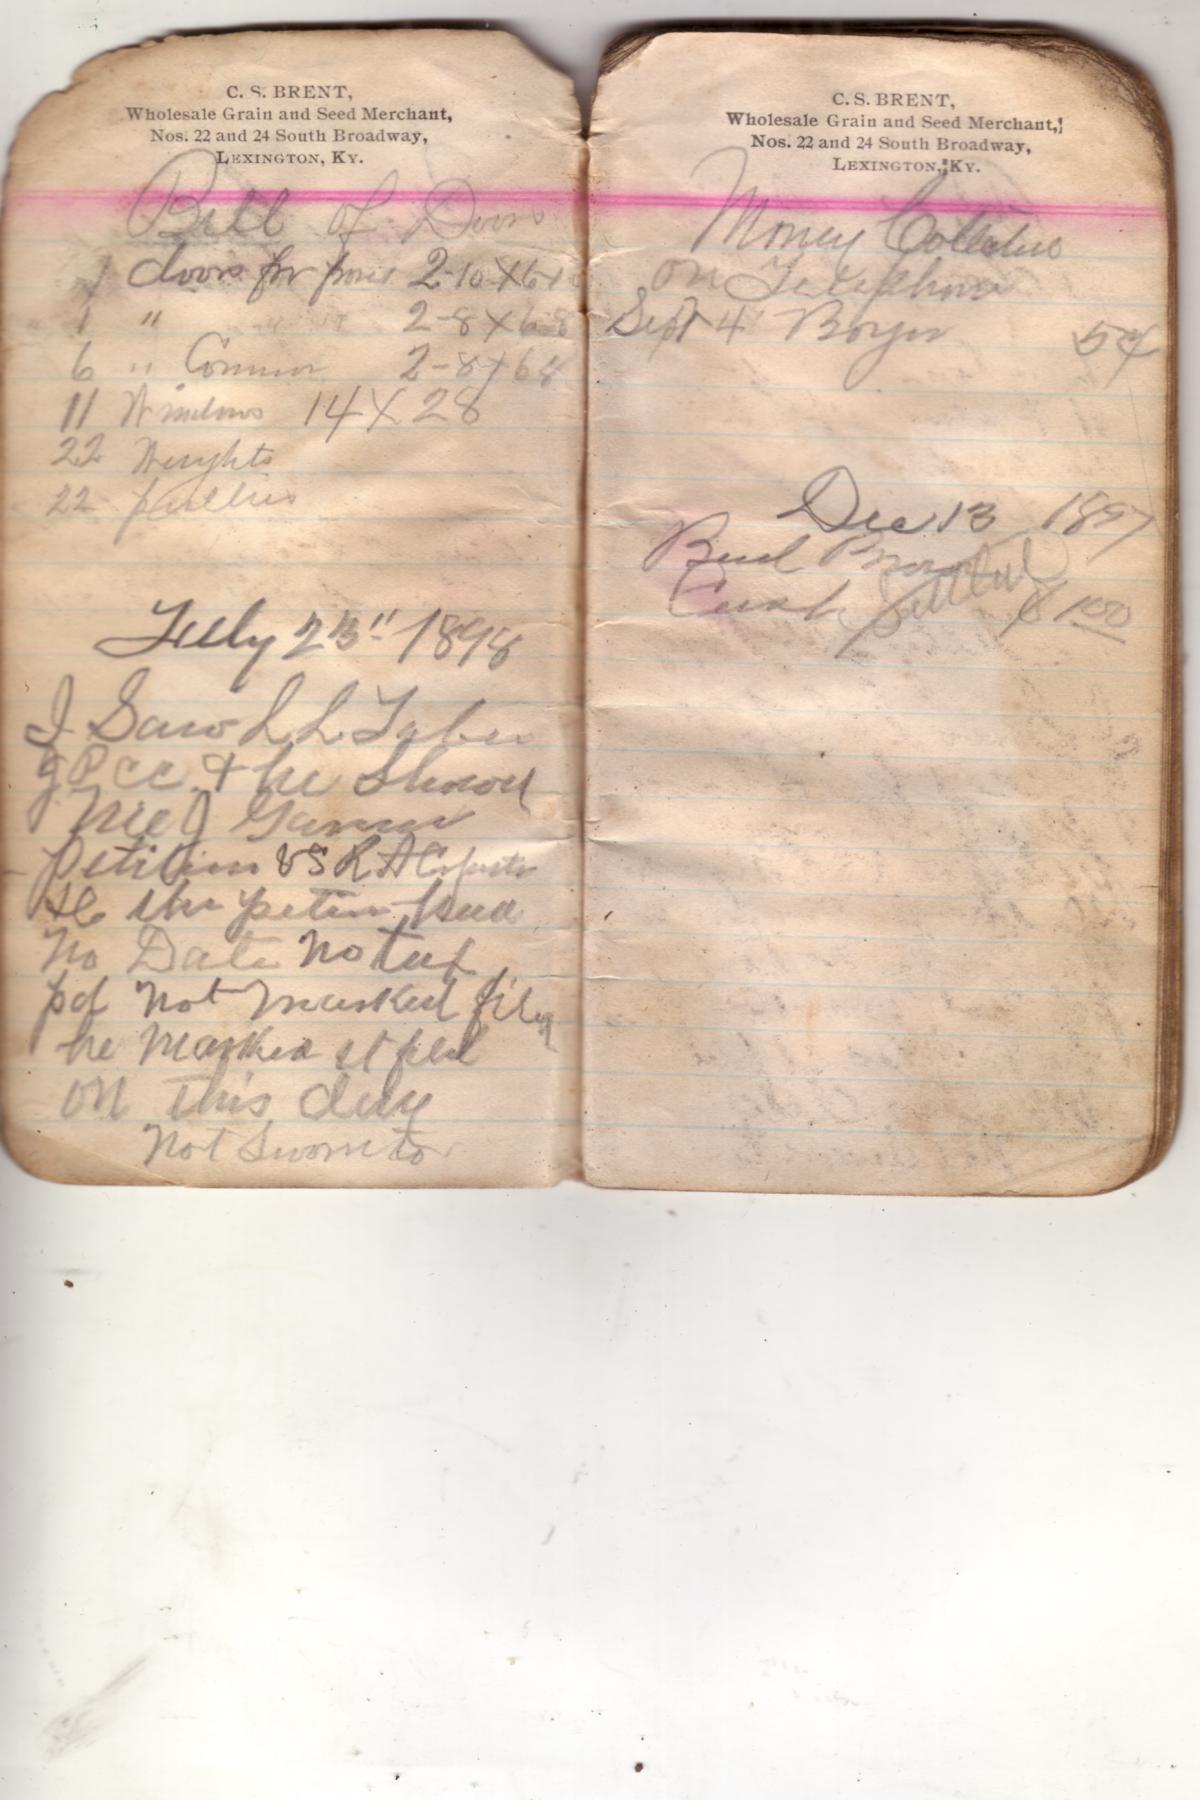 C. S. BRENT,
Wholesale Grain and Seed Merchant,
Nos. 22 and 24 South Broadway,
LEXINGTON, KY.
Bill of Doors
1 doors for 2-10 X 6-10
1 " 2-8 X 6-8
6 " Common 2-8 X 68
11 Windows 14 X 28
22 Weights
22 pullies
July 23" 1898
I Saw L L Taber
J P C C. & he Showed
Me J
Petition VS R A
no Date not
pd not marked
he Marked it filed
on this day
not Sworn to
C. S. BRENT,
Wholesale Grain and Seed Merchant,
Nos. 22 and 24 South Broadway,
LEXINGTON, KY.
Money Collected
on Telephone
Sept 4 Boyer
Dec 13 1897
Bud Brown
Cash Settled $1.00